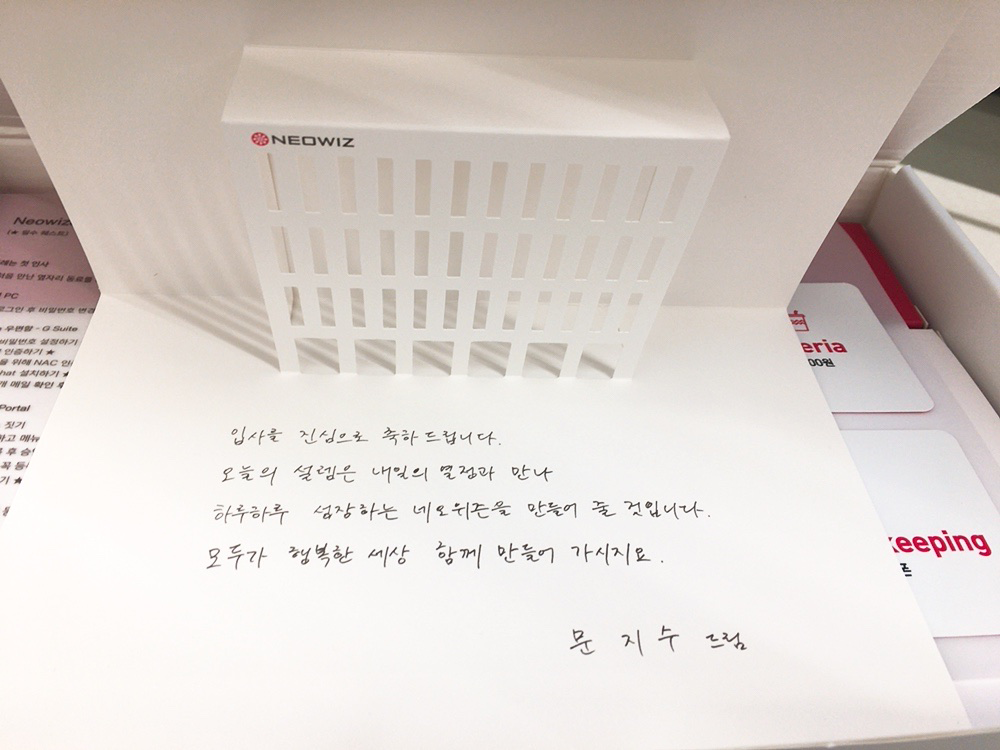 NEOWIZ
입사를 진심으로 축하드립니다.
오늘의 설렘은 내일의 열정과 만나
하루하루 성장하는 네오위즌을 만들어 줄 것입니다.
모두가 행복한 세상 함께 만들어 가시지요.
문지수 드림
Neowiz
(★ 필수 퀘스트)
첫 인사
만난 옆자리 동료
PC
로그인 후 비밀번호 변경
우편함 - G Suite
비밀번호 설정하기
인증하기 ★
위해 NAC
hat 설치하기 ★
메일 확인 후
Portal
짓기
하고 메뉴
기 ★
eria
00원
keeping
즈